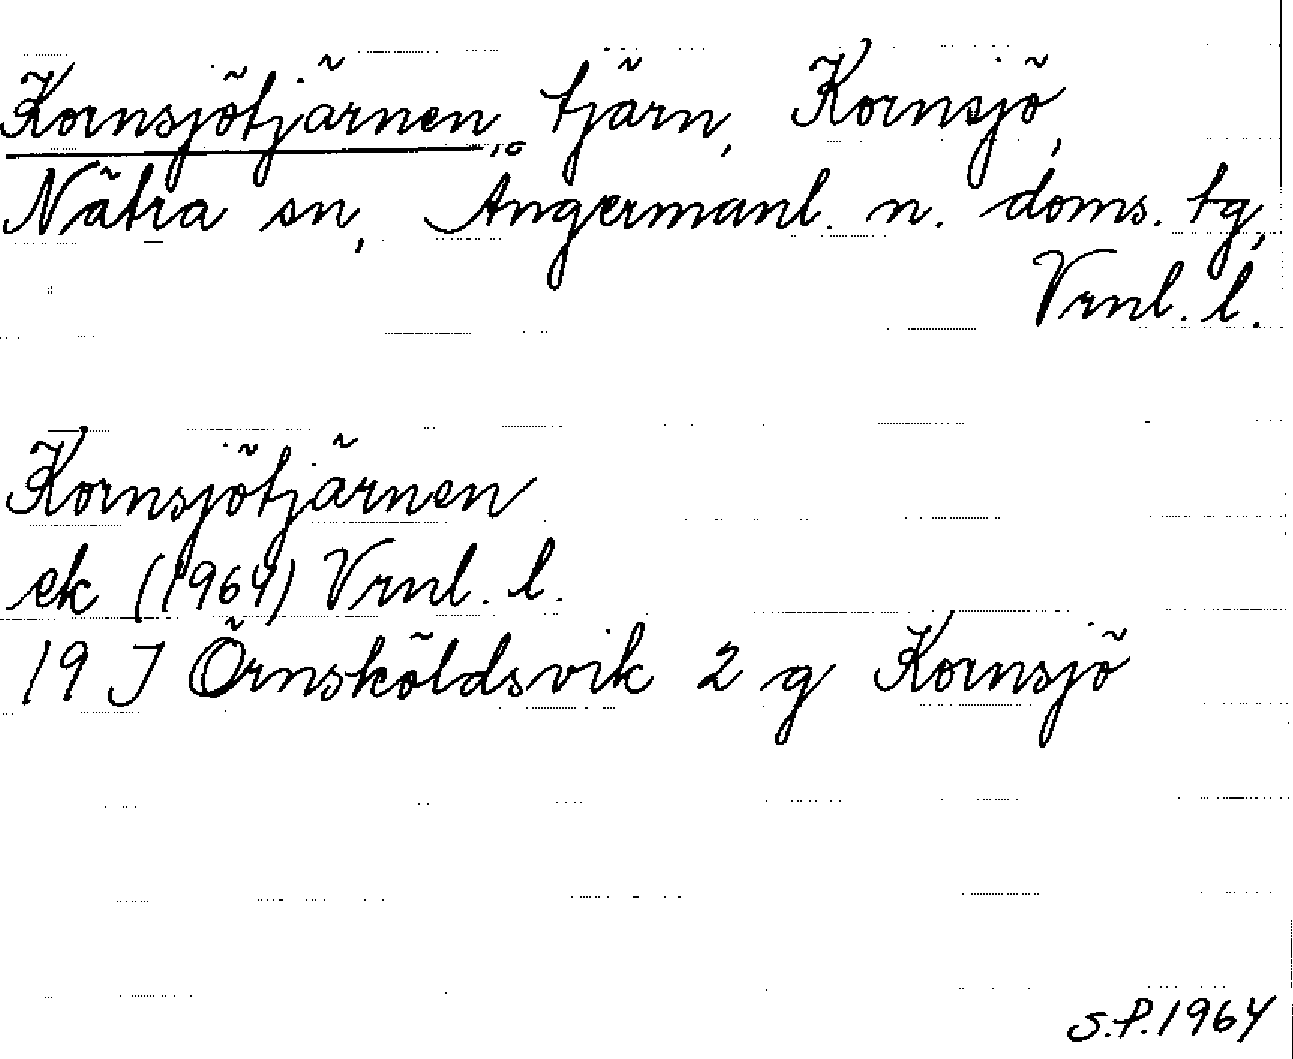 Kornsjötjärnen, tjärn, Kornsjö,
Nätra sn, Ångermanl. n. doms. tg,
Vrnl. l.
Kornsjötjärnen
ek (1964) Vrnl. l.
19 J Örnsköldsvik 2 g Kornsjö
S.P. 1964